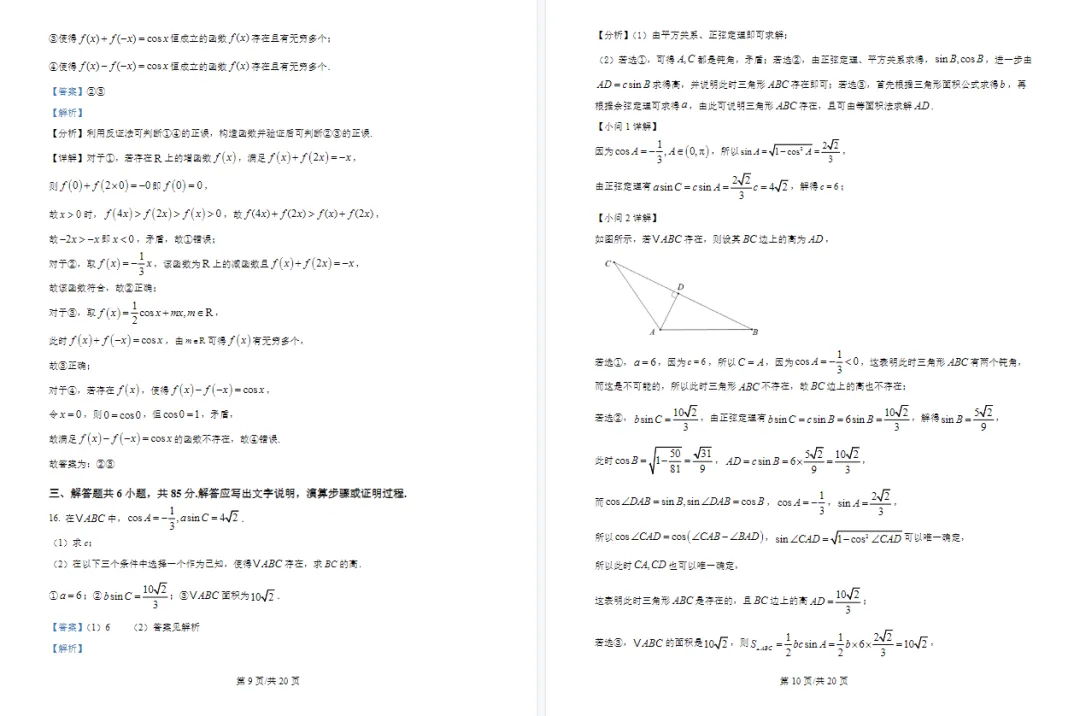 ③使得 f(x)+f(−x)=cosx 恒成立的函数 f(x) 存在且有无穷多个；
④使得 f(x)−f(−x)=cosx 恒成立的函数 f(x) 存在且有无穷多个.
【答案】②③
【解析】
【分析】利用反证法可判断①④的正误，构造函数并验证后可判断②③的正误.
【详解】对于①，若存在 R 上的增函数 f(x)，满足 f(x)+f(2x)=−x，
则 f(0)+f(2×0)=−0 即 f(0)=0，
故 x>0 时，f(4x)>f(2x)>f(x)>0，故 f(4x)+f(2x)>f(x)+f(2x)，
故 −2x>−x 即 x<0，矛盾，故①错误；
对于②，取 f(x)=−1/3 x，该函数为 R 上的减函数且 f(x)+f(2x)=−x，
故该函数符合，故②正确；
对于③，取 f(x)=1/2 cosx+mx,m∈R，
此时 f(x)+f(−x)=cosx，由 m∈R 可得 f(x) 有无穷多个，
故③正确；
对于④，若存在 f(x)，使得 f(x)−f(−x)=cosx，
令 x=0，则 0=cos0，但 cos0=1，矛盾，
故满足 f(x)−f(−x)=cosx 的函数不存在，故④错误.
故答案为：②③
三、解答题共 6 小题，共 85 分.解答应写出文字说明，演算步骤或证明过程.
16. 在 VABC 中，cosA=−1/3,asinC=4√2．
（1）求 c；
（2）在以下三个条件中选择一个作为已知，使得 VABC 存在，求 BC 的高．
①a=6；②bsinC=10√2/3；③VABC 面积为 10√2．
【答案】（1）6 （2）答案见解析
【解析】
第 9 页/共 20 页
【分析】（1）由平方关系、正弦定理即可求解；
（2）若选①，可得 A,C 都是钝角，矛盾；若选②，由正弦定理、平方关系求得，sinB,cosB，进一步由
AD=csinB 求得高，并说明此时三角形 ABC 存在即可；若选③，首先根据三角形面积公式求得 b，再
根据余弦定理可求得 a，由此可说明三角形 ABC 存在，且可由等面积法求解 AD．
【小问 1 详解】
因为 cosA=−1/3,A∈(0,π)，所以 sinA=√(1−cos²A)=2√2/3，
由正弦定理有 asinC=csinA=2√2/3 c=4√2，解得 c=6；
【小问 2 详解】
如图所示，若 VABC 存在，则设其 BC 边上的高为 AD，
C
D
A B
若选①，a=6，因为 c=6，所以 C=A，因为 cosA=−1/3<0，这表明此时三角形 ABC 有两个钝角，
而这是不可能的，所以此时三角形 ABC 不存在，故 BC 边上的高也不存在；
若选②，bsinC=10√2/3，由正弦定理有 bsinC=csinB=6sinB=10√2/3，解得 sinB=5√2/9，
此时 cosB=√(1−50/81)=√31/9，AD=csinB=6×5√2/9=10√2/3，
而 cos∠DAB=sinB,sin∠DAB=cosB，cosA=−1/3，sinA=2√2/3，
所以 cos∠CAD=cos(∠CAB−∠BAD)，sin∠CAD=√(1−cos²∠CAD) 可以唯一确定，
所以此时 CA,CD 也可以唯一确定，
这表明此时三角形 ABC 是存在的，且 BC 边上的高 AD=10√2/3；
若选③，VABC 的面积是 10√2，则 S△ABC=1/2 bcsinA=1/2 b×6×2√2/3=10√2，
第 10 页/共 20 页